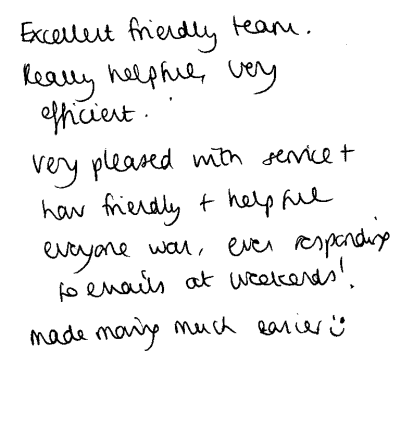 Excellent friendly team.
Really helpful, very
efficient.
very pleased with service +
how friendly + helpful
everyone was, even responding
to emails at weekends!
made moving much easier ☺